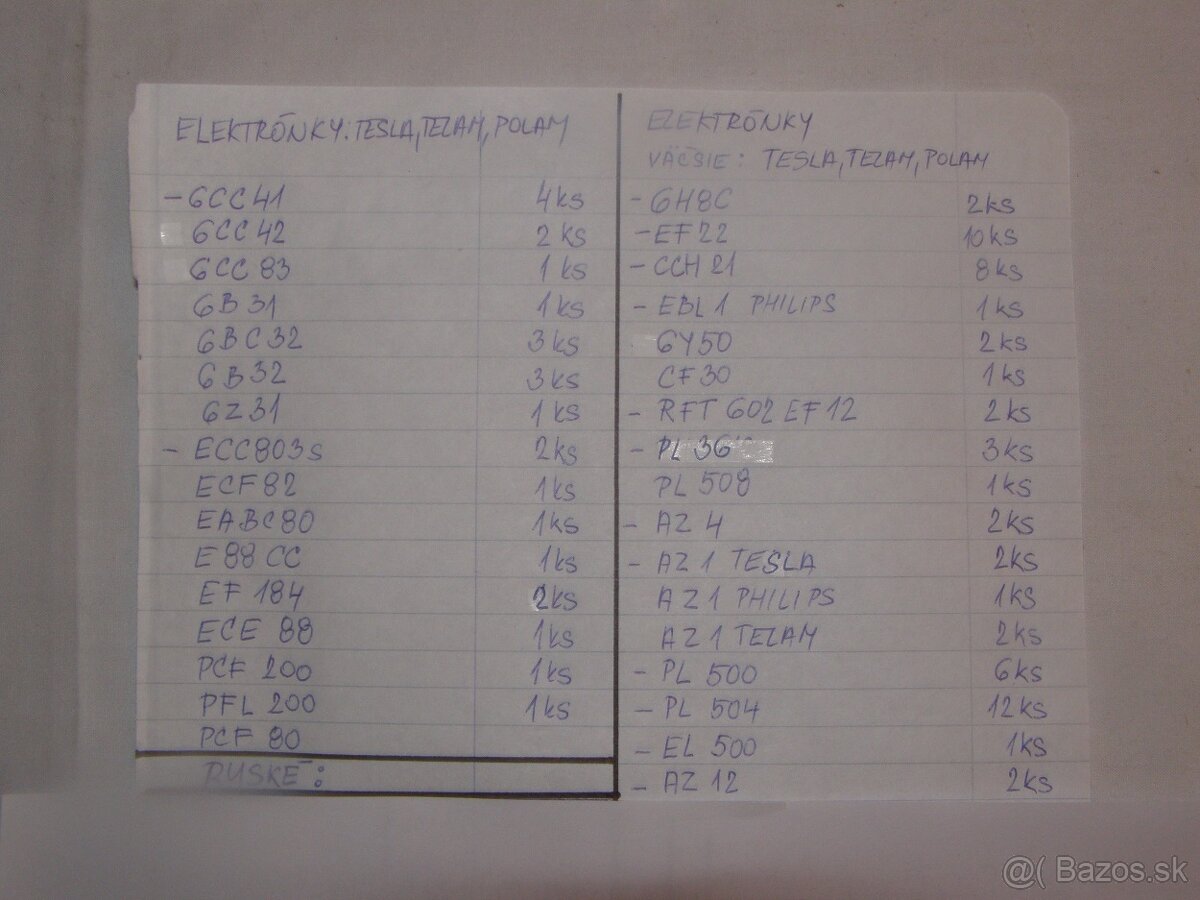 ELEKTRÓNKY: TESLA, TEZAM, POLAM
- 6CC41 4ks
6CC42 2ks
6CC 83 1ks
6B31 1ks
6BC32 3ks
6B32 3ks
6Z31 1ks
- ECC803s 2ks
ECF82 1ks
EABC80 1ks
E88CC 1ks
EF 184 2ks
ECE 88 1ks
PCF 200 1ks
PFL 200 1ks
PCF 80
RUSKÉ:
ELEKTRÓNKY
VÄČŠIE: TESLA, TEZAM, POLAM
- 6H8C 2ks
- EF22 10ks
- CCH 21 8ks
- EBL 1 PHILIPS 1ks
6Y50 2ks
CF30 1ks
- RFT 602 EF12 2ks
- PL 36 3ks
PL 508 1ks
- AZ 4 2ks
- AZ 1 TESLA 2ks
AZ1 PHILIPS 1ks
AZ1 TEZAM 2ks
- PL 500 6ks
- PL 504 12ks
- EL 500 1ks
- AZ 12 2ks
@( Bazos.sk